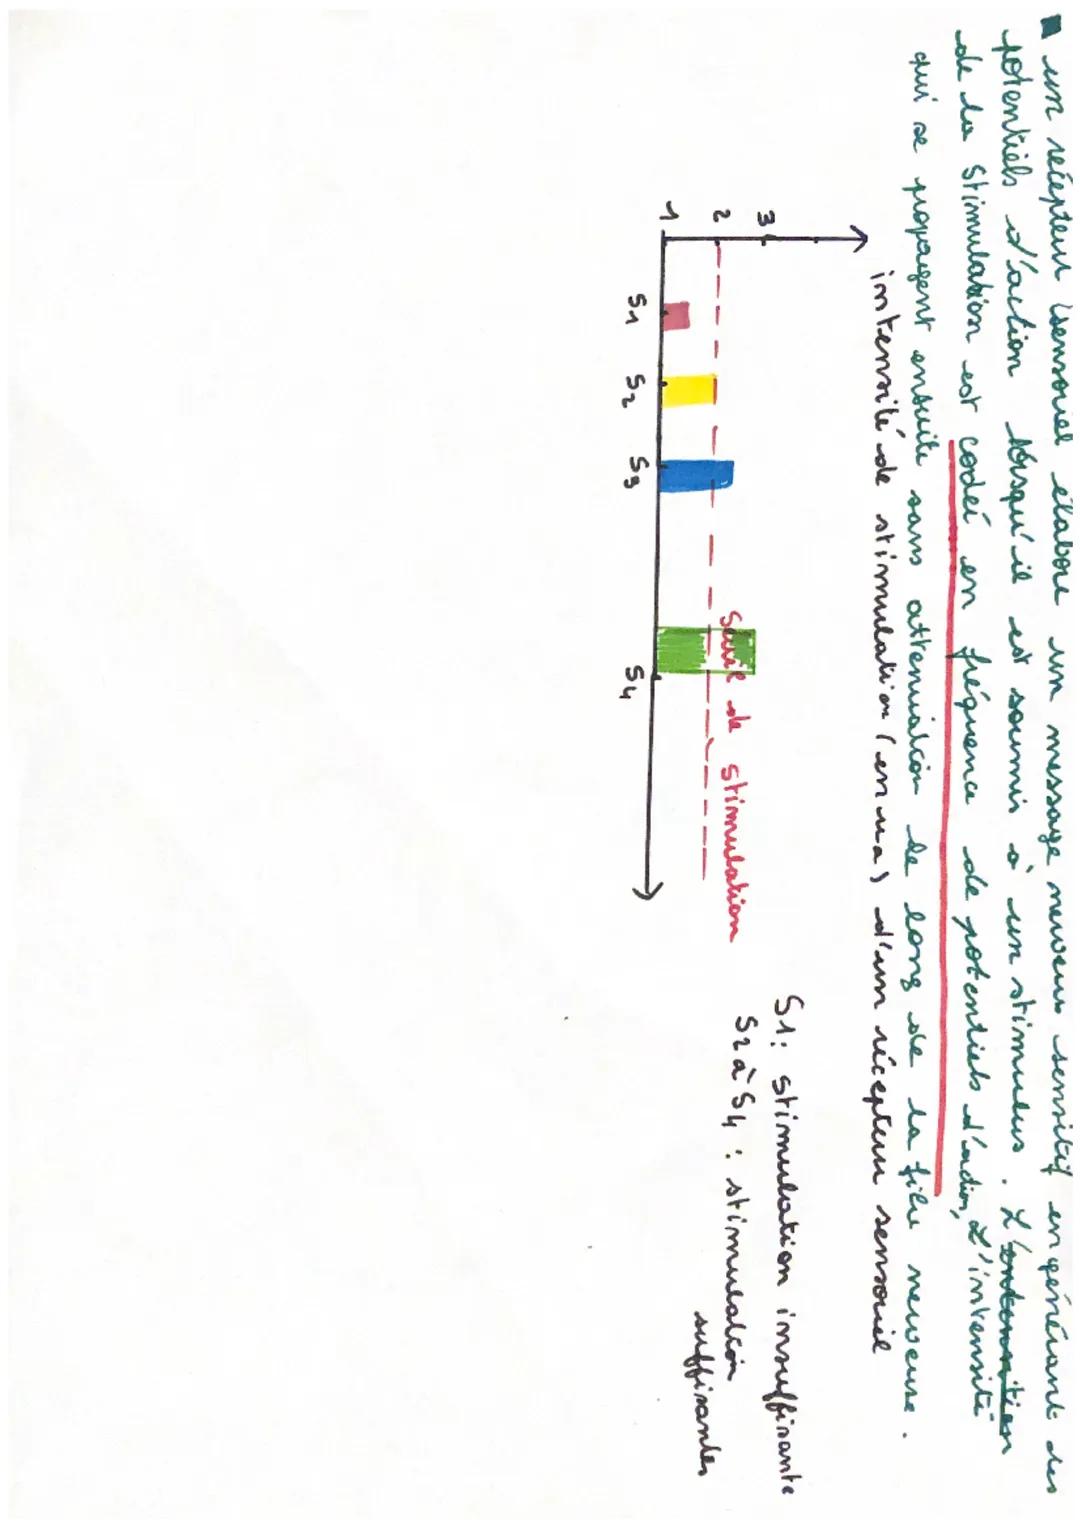 un récepteur sensoriel élabore un message nerveux sensitif en générant des
potentiels d'action lorsqu'il est soumis à un stimulus. L'
de la stimulation est codeé en fréquence de potentiels d'action, L'intensité
qui se propagent ensuite sans attenuation le long de la fibre nerveuse.
intensité de stimulation (en ma) d'un récepteur sensoriel
3
2
1
Seuil de stimulation
S1 S2 S3 S4
S1: stimulation insuffisante
S2 à S4 : stimulation
suffisantes